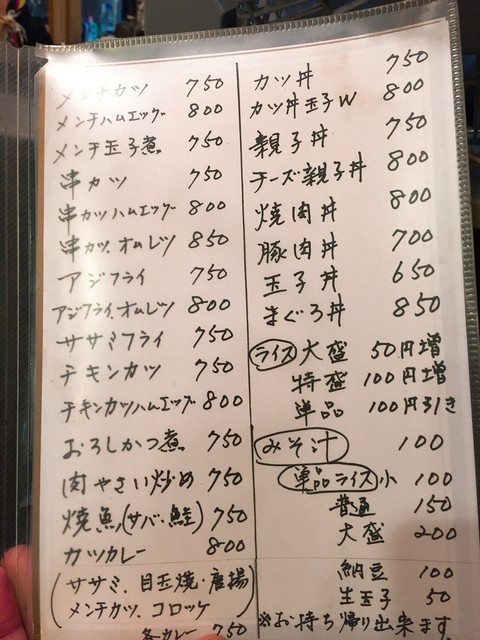 メンチカツ 750
メンチハムエッグ 800
メンチ玉子煮 750
串カツ 750
串カツハムエッグ 800
串カツ、オムレツ 850
アジフライ 750
アジフライ、オムレツ 800
ササミフライ 750
チキンカツ 750
チキンカツハムエッグ 800
おろしかつ煮 750
肉やさい炒め 750
焼魚(サバ・鮭) 750
カツカレー 800
(ササミ、目玉焼・唐揚
メンチカツ、コロッケ)
各カレー 750
カツ丼 750
カツ丼玉子W 800
親子丼 750
チーズ親子丼 800
焼肉丼 800
豚肉丼 700
玉子丼 650
まぐろ丼 850
ライス 大盛 50円増
特盛 100円増
単品 100円引き
みそ汁 100
単品ライス 小 100
普通 150
大盛 200
納豆 100
生玉子 50
※お持ち帰り出来ます